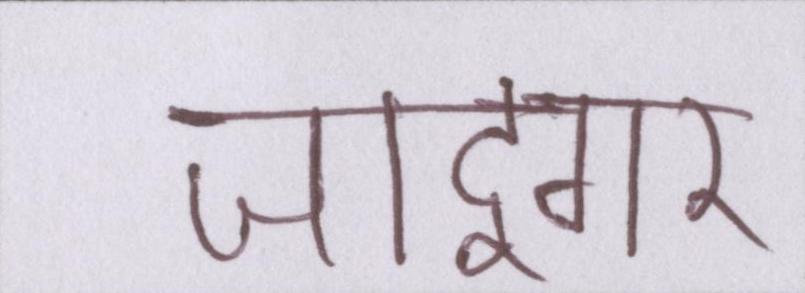 जादूगर